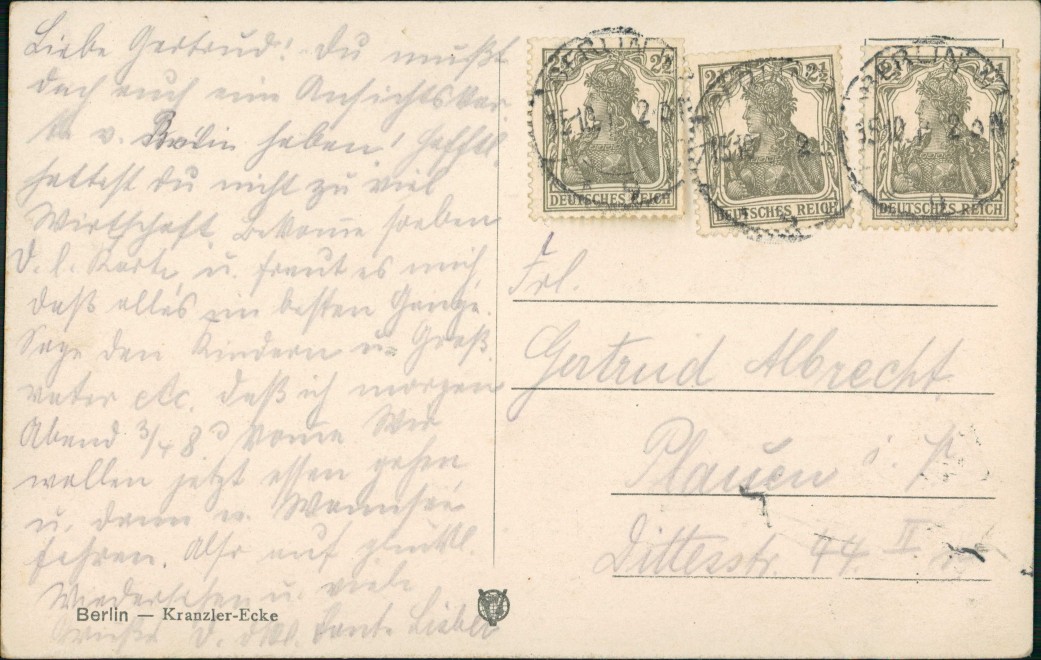 Liebe Gertrud! Du mußt
doch auch eine Ansichtskar-
te v. Berlin haben! Hofftl.
hattest Du nicht zu viel
Wirtschaft. Bekomme soeben
D. l. Karte u. freut es mich
daß alles im besten Gange.
Sage den Kindern u. Groß-
vater etc. daß ich morgen
Abend 3/4 8 komme. Wir
wollen jetzt essen gehen
u. dann n. Wannsee
fahren. Also auf glückl.
Wiedersehen u. viele
Grüße D. Tante
Berlin — Kranzler-Ecke
2½ 2½
DEUTSCHES REICH
2½ 2½
DEUTSCHES REICH
2½
DEUTSCHES REICH
BERLIN
BERLIN
Frl.
Gertrud Albrecht
Plauen i. V.
Dittesstr. 44 II